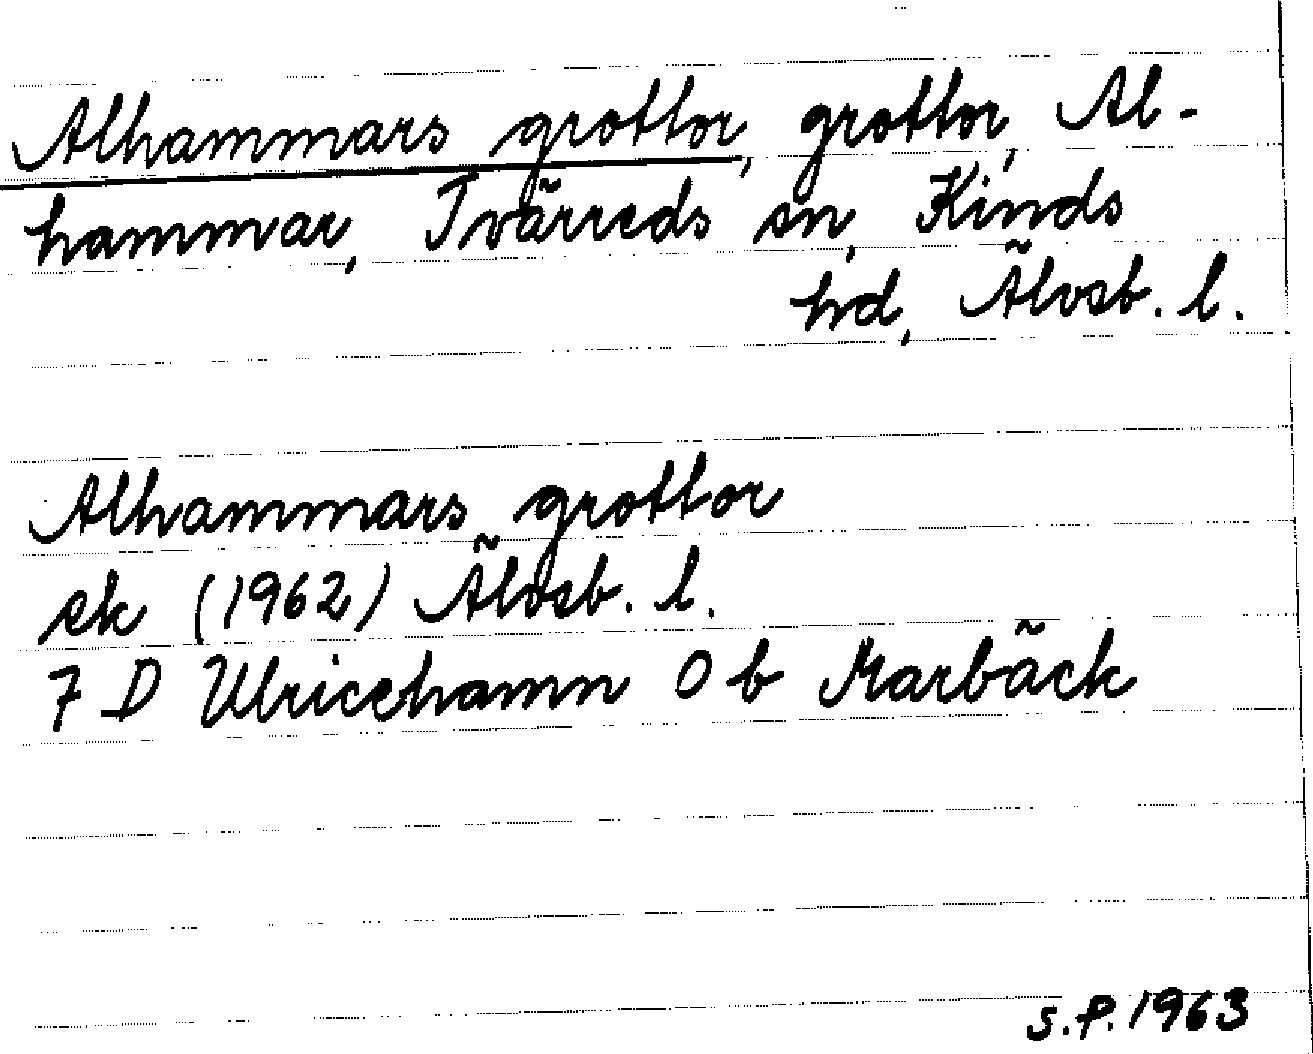 Alhammars grottor, grottor, Al-
hammar, Tvärreds sn, Kinds
hd, Älvsb. l.
Alhammars grottor
ek (1962) Älvsb. l.
7 D Ulricehamn 0 b Marbäck
S.P. 1963